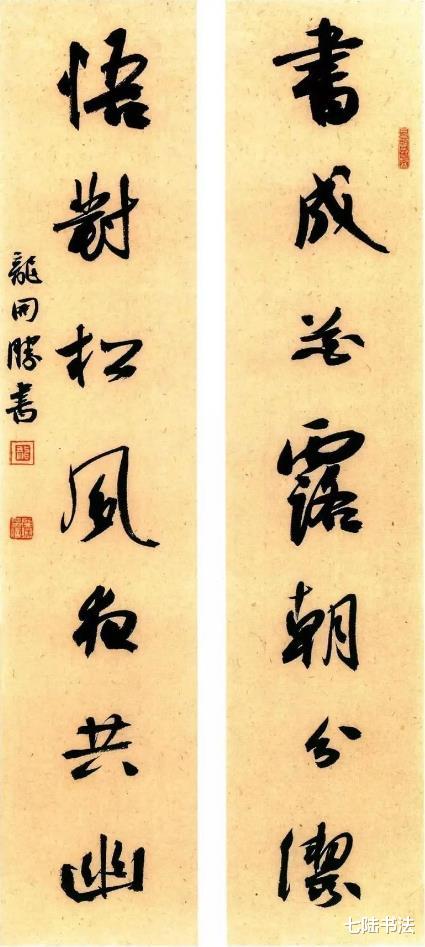 書成花露朝分潔
悟對松風夜共幽
龍開勝書
七陆书法